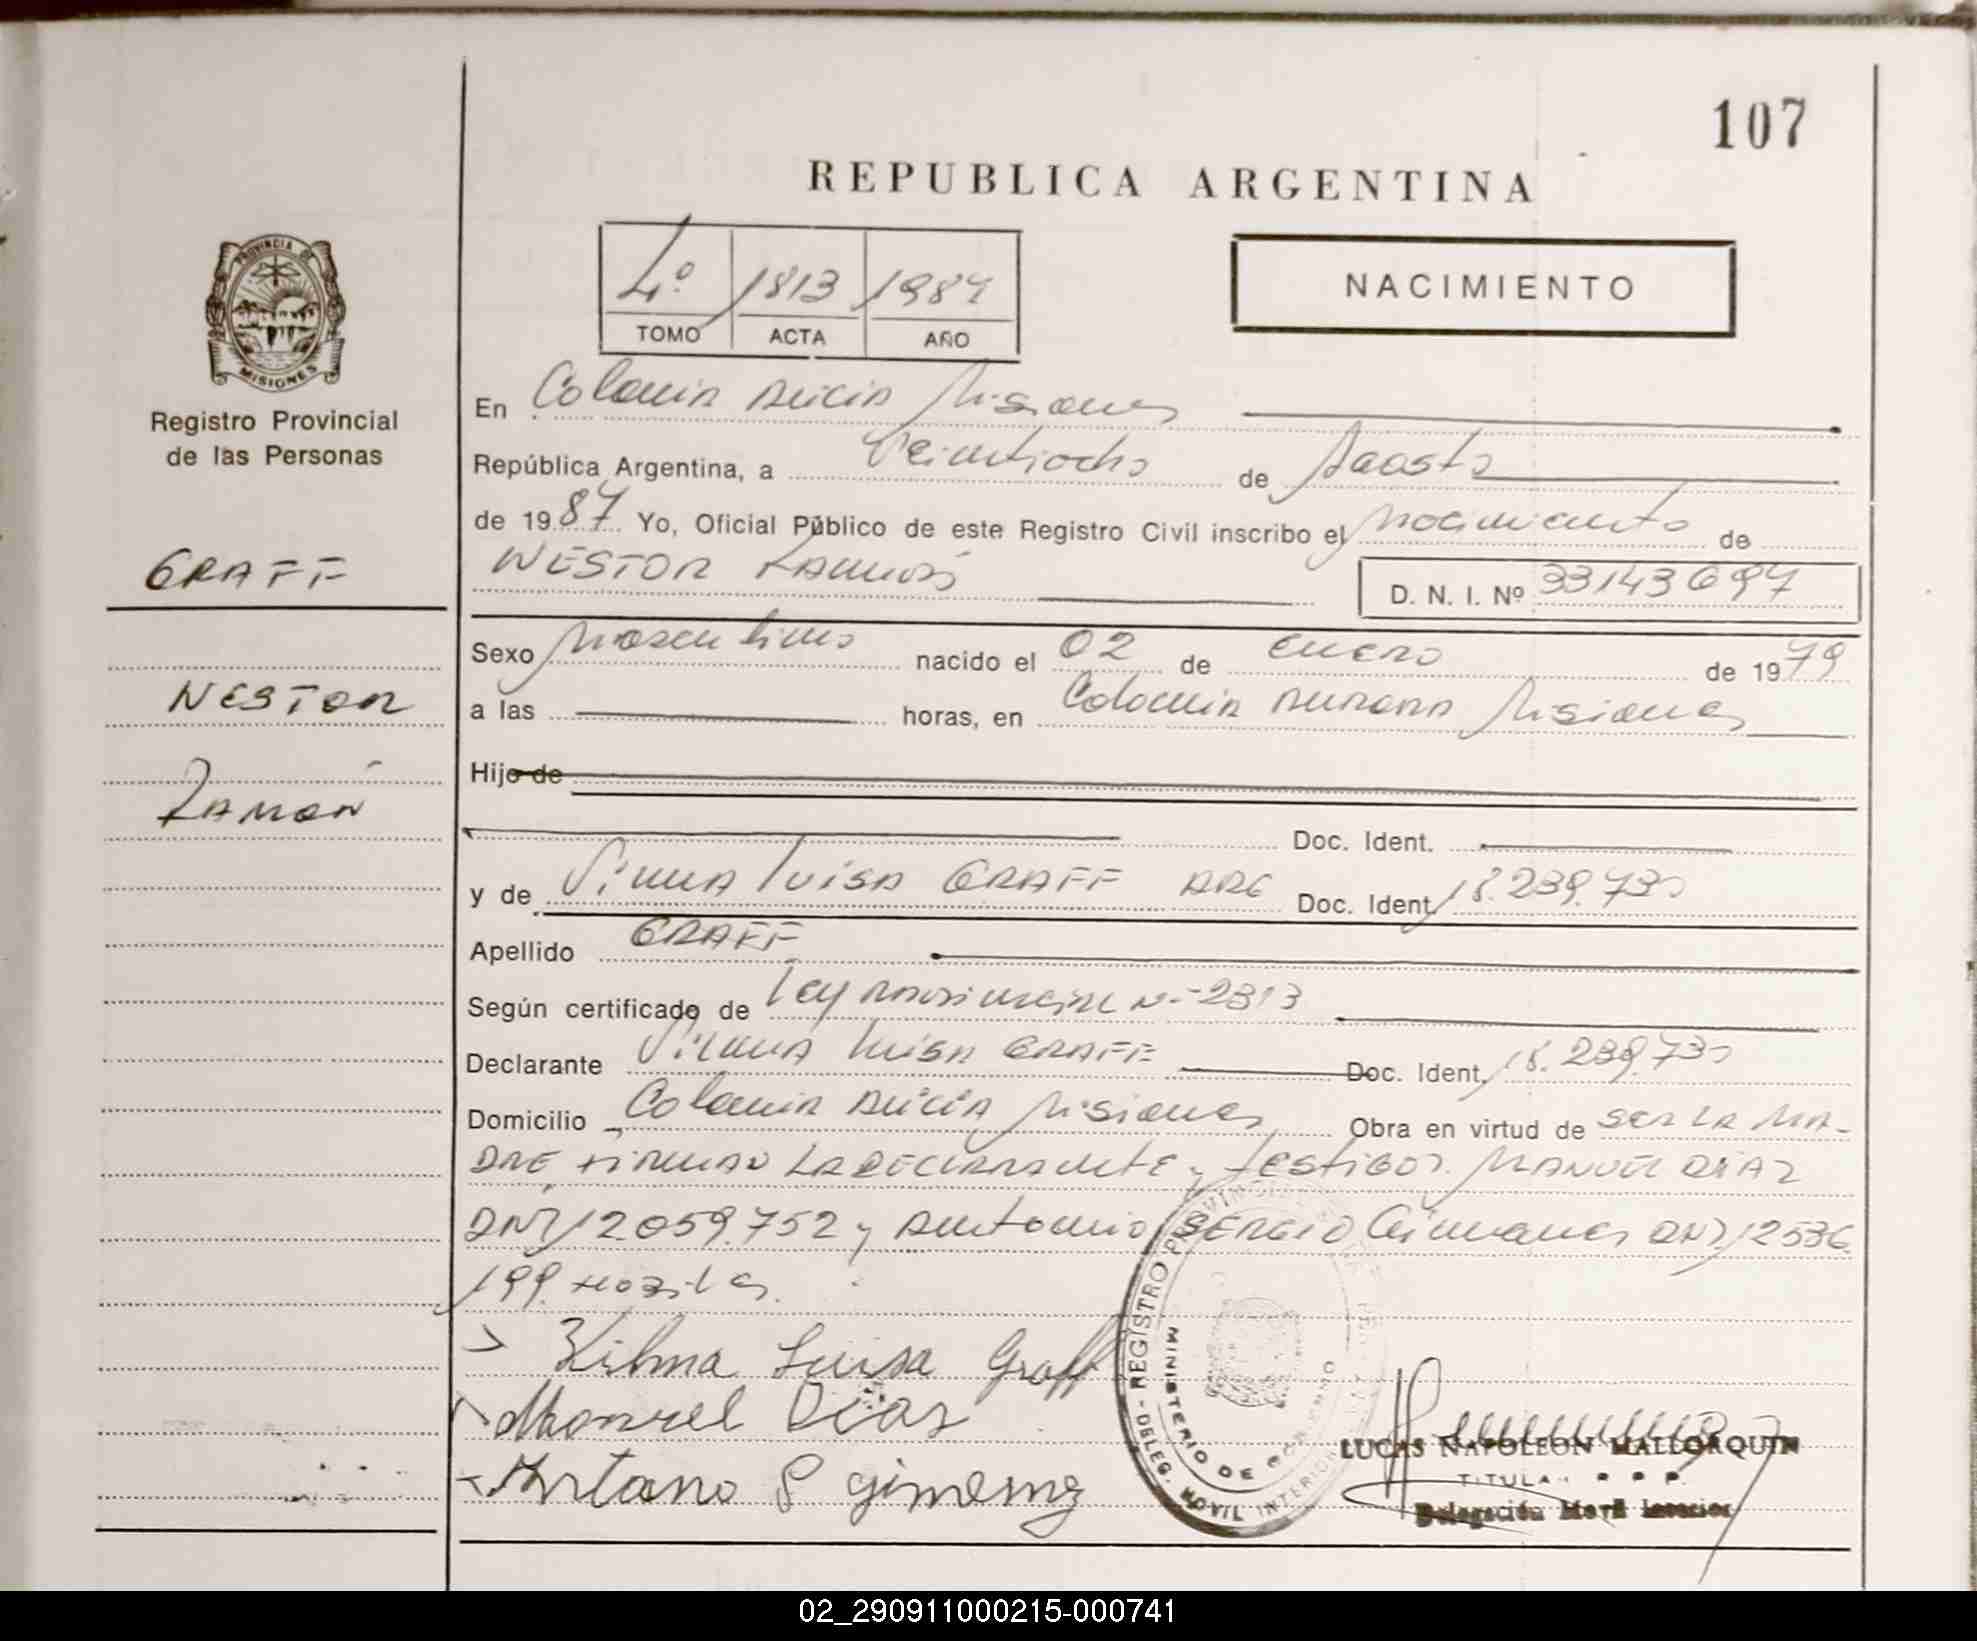 107
REPUBLICA ARGENTINA
4º 1813 1987
TOMO ACTA AÑO
NACIMIENTO
PROVINCIA DE
MISIONES
Registro Provincial
de las Personas
GRAFF
NESTOR
RAMON
En Colonia Alicia Misiones
República Argentina, a Veintiocho de Agosto
de 1987 Yo, Oficial Público de este Registro Civil inscribo el nacimiento de
NESTOR RAMON D. N. I. Nº 33143697
Sexo Masculino nacido el 02 de enero de 1979
a las horas, en Colonia Aurora Misiones
Hijo de
Doc. Ident.
y de Vilma Luisa GRAFF ARG Doc. Ident. 18.239.73
Apellido GRAFF
Según certificado de Ley Provincial N- 2313
Declarante Vilma Luisa GRAFF Doc. Ident. 18.239.73
Domicilio Colonia Alicia Misiones Obra en virtud de SER LA MA-
DRE FIRMAN LA DECLARANTE y testigos. MANUEL DIAZ
DNI 12.059.752 y Antonio SERGIO Gimenez DNI 12536
199.
Vilma Luisa Graff
Manuel Dias
Antonio S gimenez
REGISTRO PROVINCIAL
MINISTERIO DE GOBIERNO
DELEG. MOVIL INTERIOR
LUCAS NAPOLEON MALLORQUIN
TITULAR
Delegación Movil Interior
02_290911000215-000741